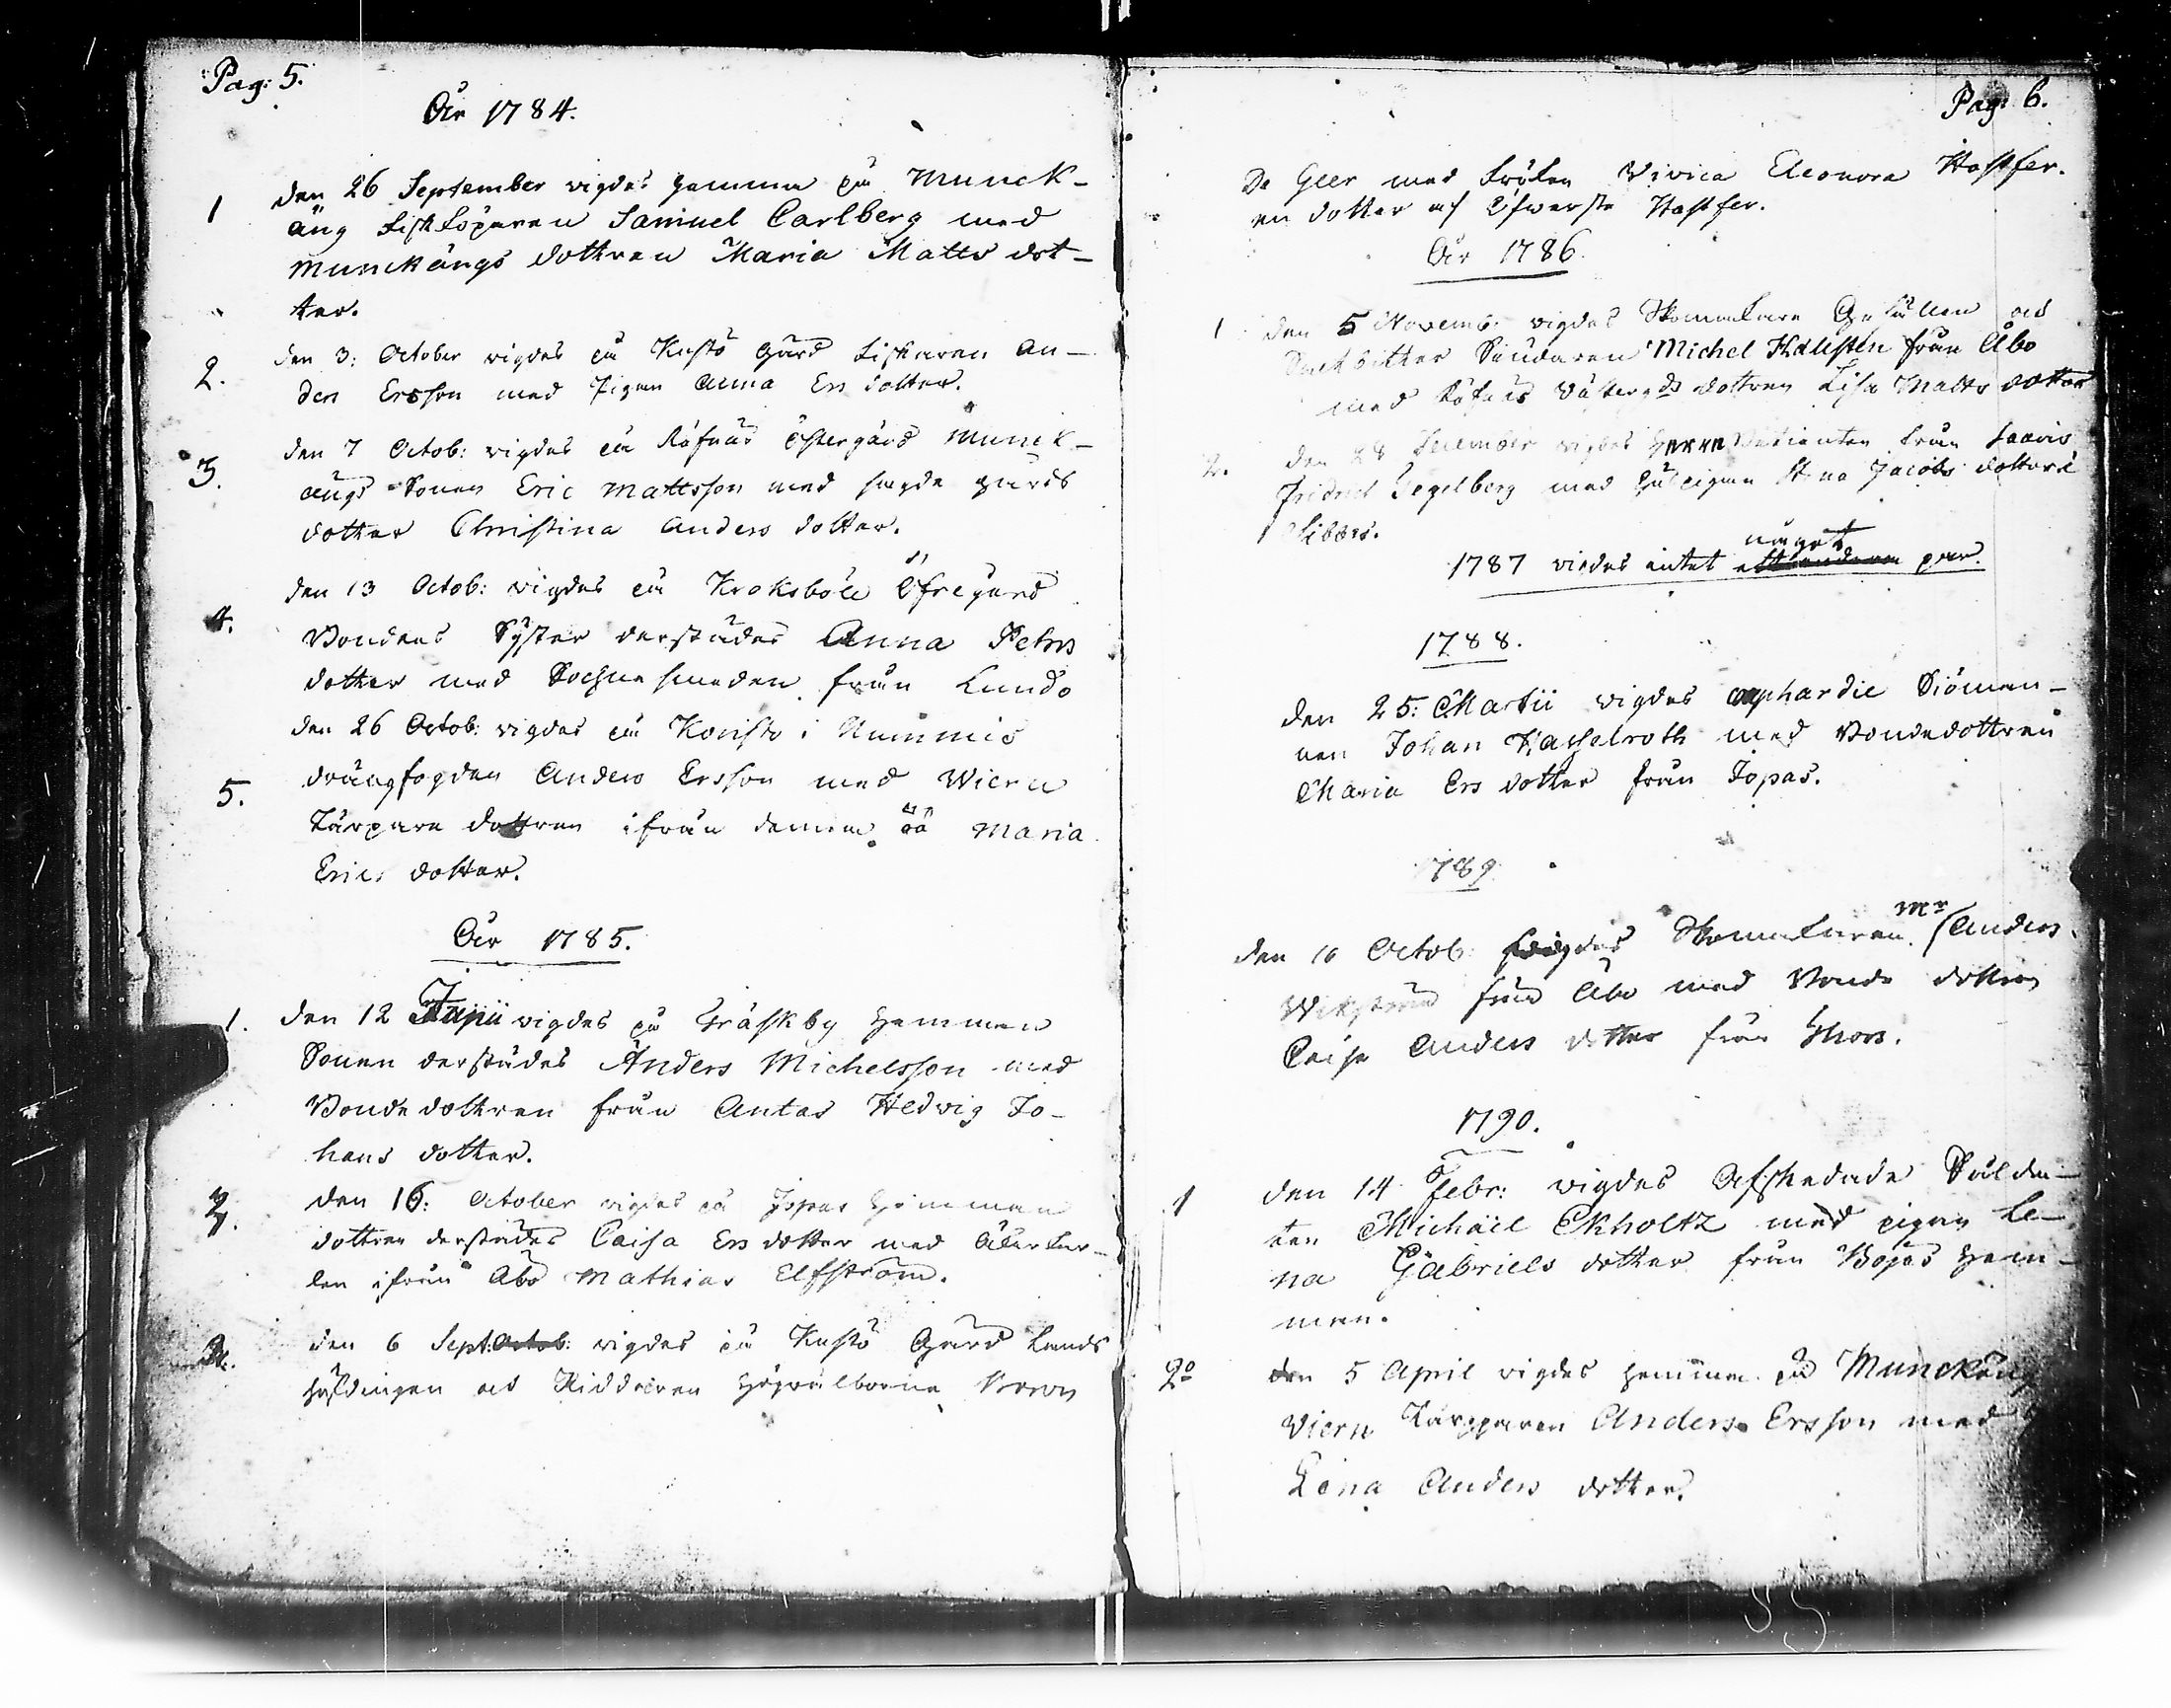 Pag: 5.
År 1784.
1 den 26 September vigdes hemma på Munck-
äng Fiskköparen Samuel Carlberg med
Munckängs dottren Maria Matts dot-
ter.
2. den 3: October vigdes på Kustö Gård Fiskaren An-
ders Ersson med Pigan Anna Ers dotter.
3. den 7 Octob: vigdes på Räfnäs Östergård Munck-
ängs Sonen Eric Mattsson med sagde gårds
dotter Christina Anders dotter.
4. den 13 Octob: vigdes på Kroksböle Öfregård
Bondens Syster derstädes Anna Petrs
dotter med Sochne smeden från Lundo
5. den 26 Octob: vigdes på Konsto i Nummis
drängfogden Anders Ersson med Wiern
Tärpare dottren ifrån denna ö Maria
Erics dotter.
År 1785.
1. den 12 Junii vigdes på Träskby Hemmen
Sonen derstädes Anders Michelsson med
Bonde dottren från Antas Hedvig Jo-
hans dotter.
2. den 16: October vigdes på Jopas Hemman
dottren derstädes Caisa Ers dotter med
ifrån Åbo Mathias Elfström.
3. den 6 Sept: Octob: vigdes på Kustö Gård Lands
höfdingen och Riddaren Högvälborne Baron
Pag: 6.
De Geer med Fröken Vivica Eleonora Hastfer.
en dotter af Öfwerste Hastfer.
År 1786.
1 den 5 Novemb: vigdes Skomakare Gesällen och
Michel Hallsten från Åbo
med Räfnäs Västergds dottren Lisa Matts dotter
2. den 28 December vigdes Herr från
Fridrich Segelberg med Stina Jacobs dotter

1787 vigdes intet något par.
1788.
den 25: Martii vigdes Siöman-
nen Johan Hasselroth med Bondedottren
Maria Ers dotter från Jopas.
1789
den 10 Octob: vigdes Skomakaren Mr Anders
Wikström från Åbo med Bonde dottren
Caisa Anders dotter från
1790.
1 den 14 Febr: vigdes Afskedade Solda-
ten Michäil Ekholtz med pigan Le-
na Gabriels dotter från Bojas Hem-
man.
2o den 5 April vigdes hemma på Munckäng
Viern Tärpparen Anders Ersson med
Lena Anders dotter.